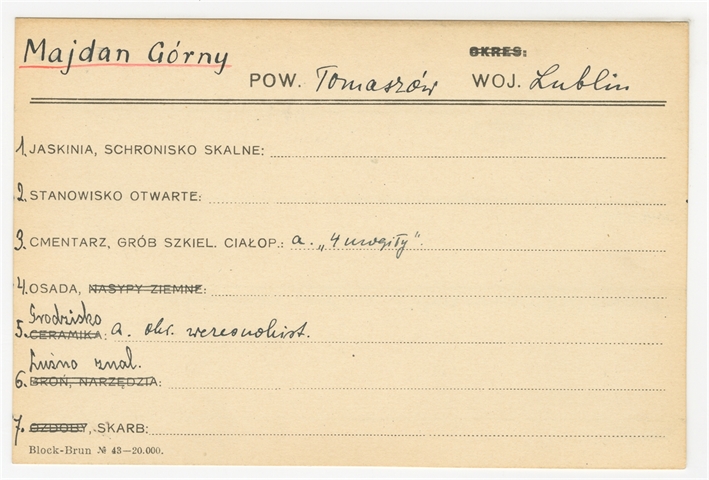 Majdan Górny
OKRES:
POW. Tomaszów WOJ. Lublin
1. JASKINIA, SCHRONISKO SKALNE:
2. STANOWISKO OTWARTE:
3. CMENTARZ, GRÓB SZKIEL. CIAŁOP.: a. „4 mogiły".
4. OSADA, NASYPY ZIEMNE:
Grodzisko
5. CERAMIKA: a. okr. wczesnohist.
Luźno znal.
6. BROŃ, NARZĘDZIA:
7. OZDOBY, SKARB:
Block-Brun № 43—20.000.